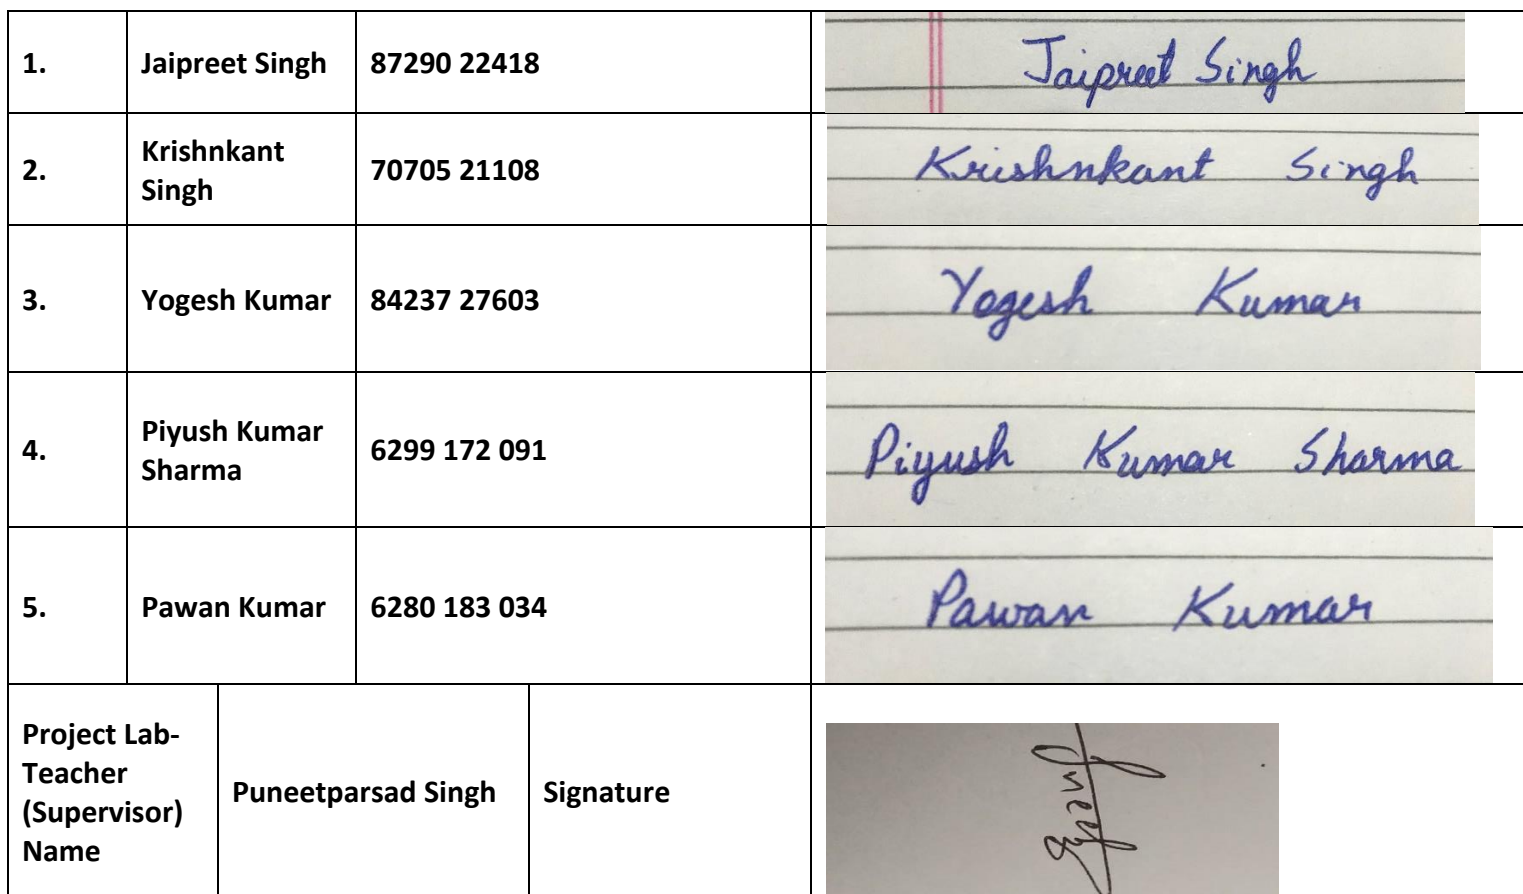 1. Jaipreet Singh 87290 22418 Jaipreet Singh
2. Krishnkant 70705 21108 Krishnkant Singh
Singh
3. Yogesh Kumar 84237 27603 Yogesh Kumar
4. Piyush Kumar 6299 172 091 Piyush Kumar Sharma
Sharma
5. Pawan Kumar 6280 183 034 Pawan Kumar
Project Lab-
Teacher
(Supervisor)
Name
Puneetparsad Singh
Signature